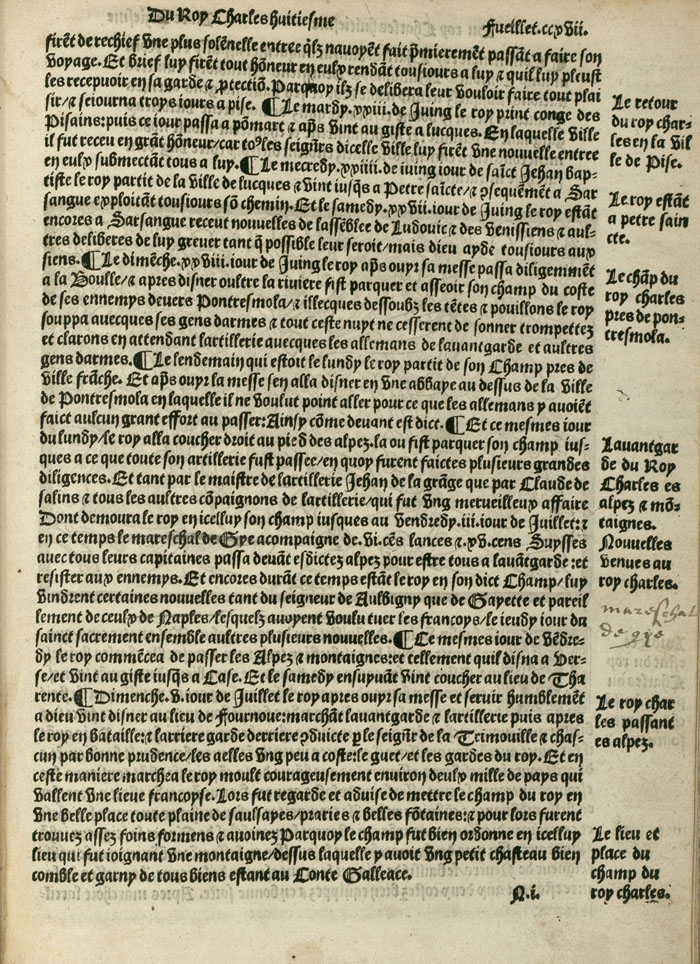 Du Roy Charles huitiesme
Fueillet. ccxvii.
firēt de rechief vne plus solēnelle entree qlz nauoyēt fait p̄mieremēt passāt a faire son
voyage. Et brief luy firēt tout hōneur en eulx rendāt tousiours a luy ⁊ quil luy pleust
les recepuoir en sa garde ⁊ ꝓtectiō. Parquoy ilz se delibera leur vouloir faire tout plai
sir/⁊ seiourna troys iours a pise. ¶ Le mardy. xxiii. de Juing le roy print conge des
Pisains: puis ce iour passa a pōmart ⁊ ap̄s vint au giste a lucques. En laquelle ville
il fut receu en grāt hōneur/car to⁹ les seignr̄s dicelle ville luy firēt vne nouuelle entree
en eulx submectāt tous a luy. ¶ Le mecredy. xxiiii. de iuing iour de saīct Jehan bap-
tiste le roy partit de la ville de lucques ⁊ vint iusq̄s a Petre saīcte/⁊ ꝯsequēmēt a Sar
sangue exploitāt tousiours sō chemin. Et le samedy. xxvii. iour de Juing le roy estāt
encores a Sarsangue receut nouuelles de lassēblee de Ludouic ⁊ des Venissiens ⁊ aul-
tres deliberes de luy greuer tant q̄ possible leur seroit/mais dieu ayde tousiours aux
siens. ¶ Le dimēche. xxviii. iour de Juing le roy ap̄s ouyr sa messe passa diligemmēt
a la Voulle/⁊ apres disner oultre la riuiere fist parquer et asseoir son champ du coste
de ses ennemys deuers Pontresmola/⁊ illecques dessoubz les tētes ⁊ pouillons le roy
souppa auecques ses gens darmes ⁊ tout ceste nuyt ne cesserent de sonner trompettez
et clarons en attendant lartillerie auecques les allemans de lauantgarde et aultres
gens darmes. ¶ Le lendemain qui estoit le lundy le roy partit de son Champ pres de
ville frāche. Et ap̄s ouyr la messe sen alla disner en vne abbaye au dessus de la ville
de Pontresmola en laquelle il ne voulut point aller pour ce que les allemans y auoiēt
faict aulcun grant effort au passer: Ainsy cōme deuant est dict. ¶ Et ce mesmes iour
du lundy/le roy alla coucher droit au pied des alpez. la ou fist parquer son champ ius-
ques a ce que toute son artillerie fust passee/en quoy furent faictes plusieurs grandes
diligences. Et tant par le maistre de lartillerie Jehan de la grāge que par Claude de
salins ⁊ tous les aultres cōpaignons de lartillerie/qui fut vng merueilleux affaire
Dont demoura le roy en icelluy son champ iusques au vendredy. iii. iour de Juillet: ⁊
en ce temps le mareschal de Gye acompaigne de. vi. cēs lances ⁊ xv. cens Suysses
auec tous leurs capitaines passa deuāt esdictez alpez pour estre tous a lauātgarde: et
resister aux ennemys. Et encores durāt ce temps estāt le roy en son dict Champ/luy
vindrent certaines nouuelles tant du seigneur de Aulbigny que de Gayette et pareil
lement de ceulx de Naples/lesquelz auoyent voulu tuer les francoys/le ieudy iour du
sainct sacrement ensemble aultres plusieurs nouuelles. ¶ Ce mesmes iour de vēdre-
dy le roy commēcea de passer les Alpez ⁊ montaignes: et tellement quil disna a Ver-
se/et vint au giste iusq̄s a Case. Et le samedy ensuyuāt vint coucher au lieu de Tha
rente. ¶ Dimenche. v. iour de Juillet le roy apres ouyr sa messe et seruir humblemēt
a dieu vint disner au lieu de Fournoue: marchāt lauantgarde ⁊ lartillerie puis apres
le roy en bataille: ⁊ larriere garde derriere ꝯduicte ꝑ le seignr̄ de la Trimouille ⁊ chas-
cun par bonne prudence/les aelles vng peu a coste: le guet/et les gardes du roy. Et en
ceste maniere marchea le roy moult courageusement enuiron deulx mille de pays qui
vallent vne lieue francoyse. Lors fut regarde et aduise de mettre le champ du roy en
vne belle place toute plaine de saulsayes/praries ⁊ belles fōtaines: ⁊ pour lors furent
trouuez assez foins formens ⁊ auoinez Parquoy le champ fut bien ordonne en icelluy
lieu qui fut ioignant vne montaigne/dessus laquelle y auoit vng petit chasteau bien
comble et garny de tous biens estant au Conte Galleace.
N. i.
Le retour
du roy char-
les en la vil
le de Pise.
Le roy estāt
a petre sain
cte.
Le chāp du
roy charles
pres de pon-
tresmola.
Lauantgar
de du Roy
Charles es
alpez ⁊ mō-
taignes.
Nouuelles
venues au
roy charles.
mareschal
de gye
Le roy char
les passant
es alpez.
Le lieu et
place du
champ du
roy charles.